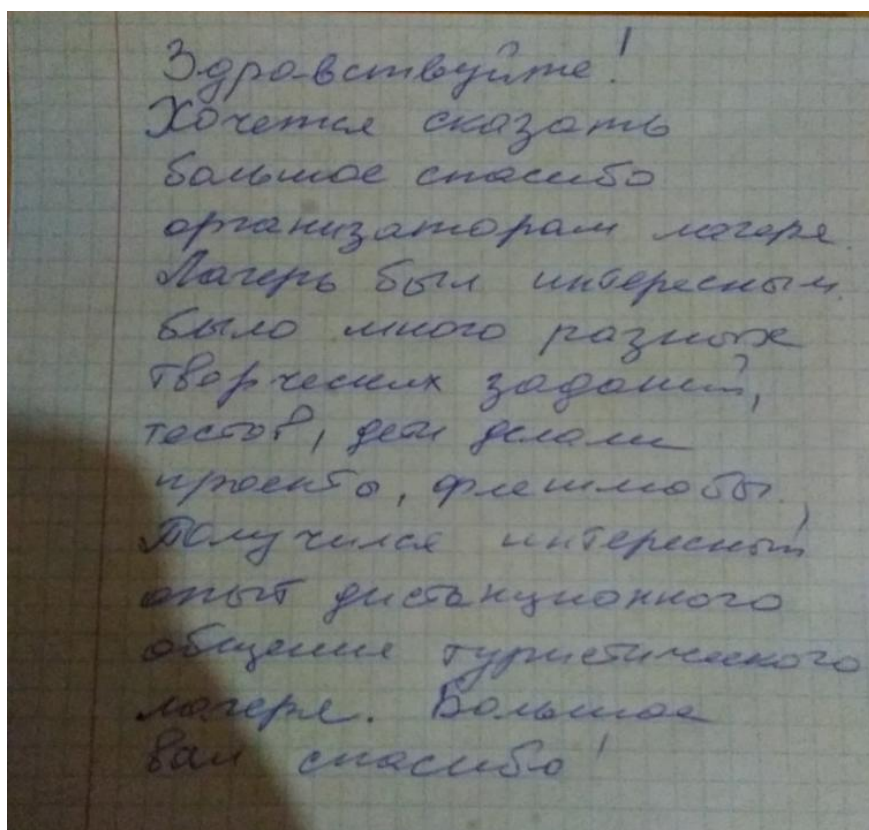 Здравствуйте!
Хочется сказать
большое спасибо
организаторам лагеря.
Лагерь был интересным.
было много разных
творческих заданий,
тестов, дети делали
проекты, флешмобы.
Получился интересный
опыт дистанционного
общения туристического
лагеря. Большое
вам спасибо!